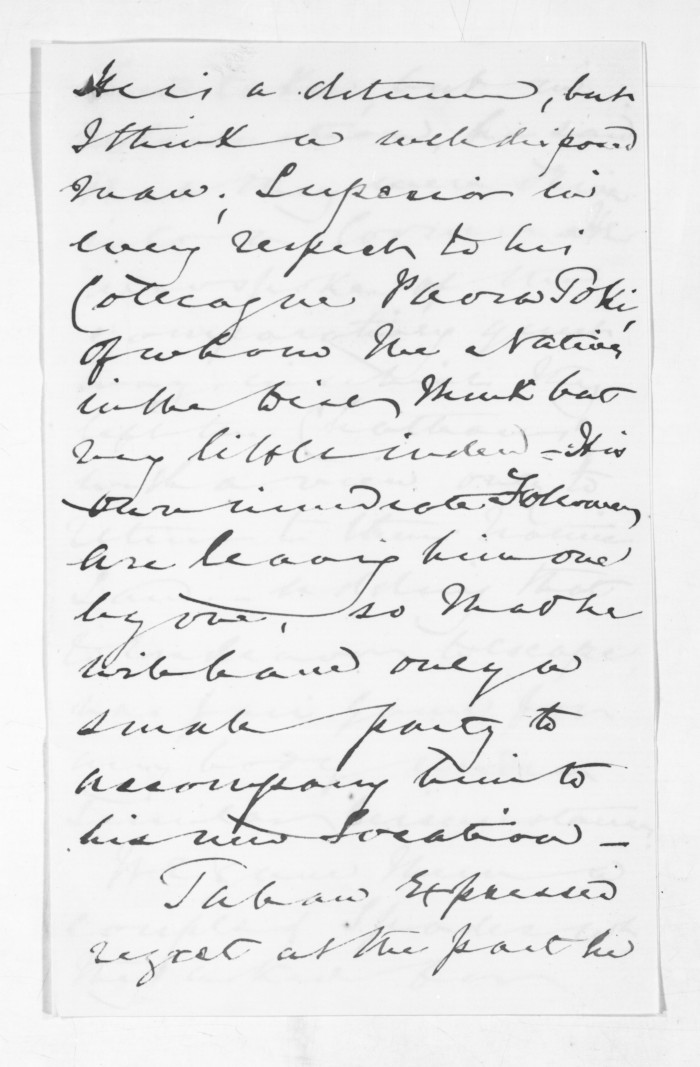 He is a determined, but
I think a well disposed
man; Superior in
every respect to his
Colleague Paora Toki,
of whom the Natives
in the Bay think but
very little indeed - His
own immediate Followers
are leaving him one
by one, so that he
will have only a
small party to
accompany him to
his new location -
Tahau Expressed
regret at the part he